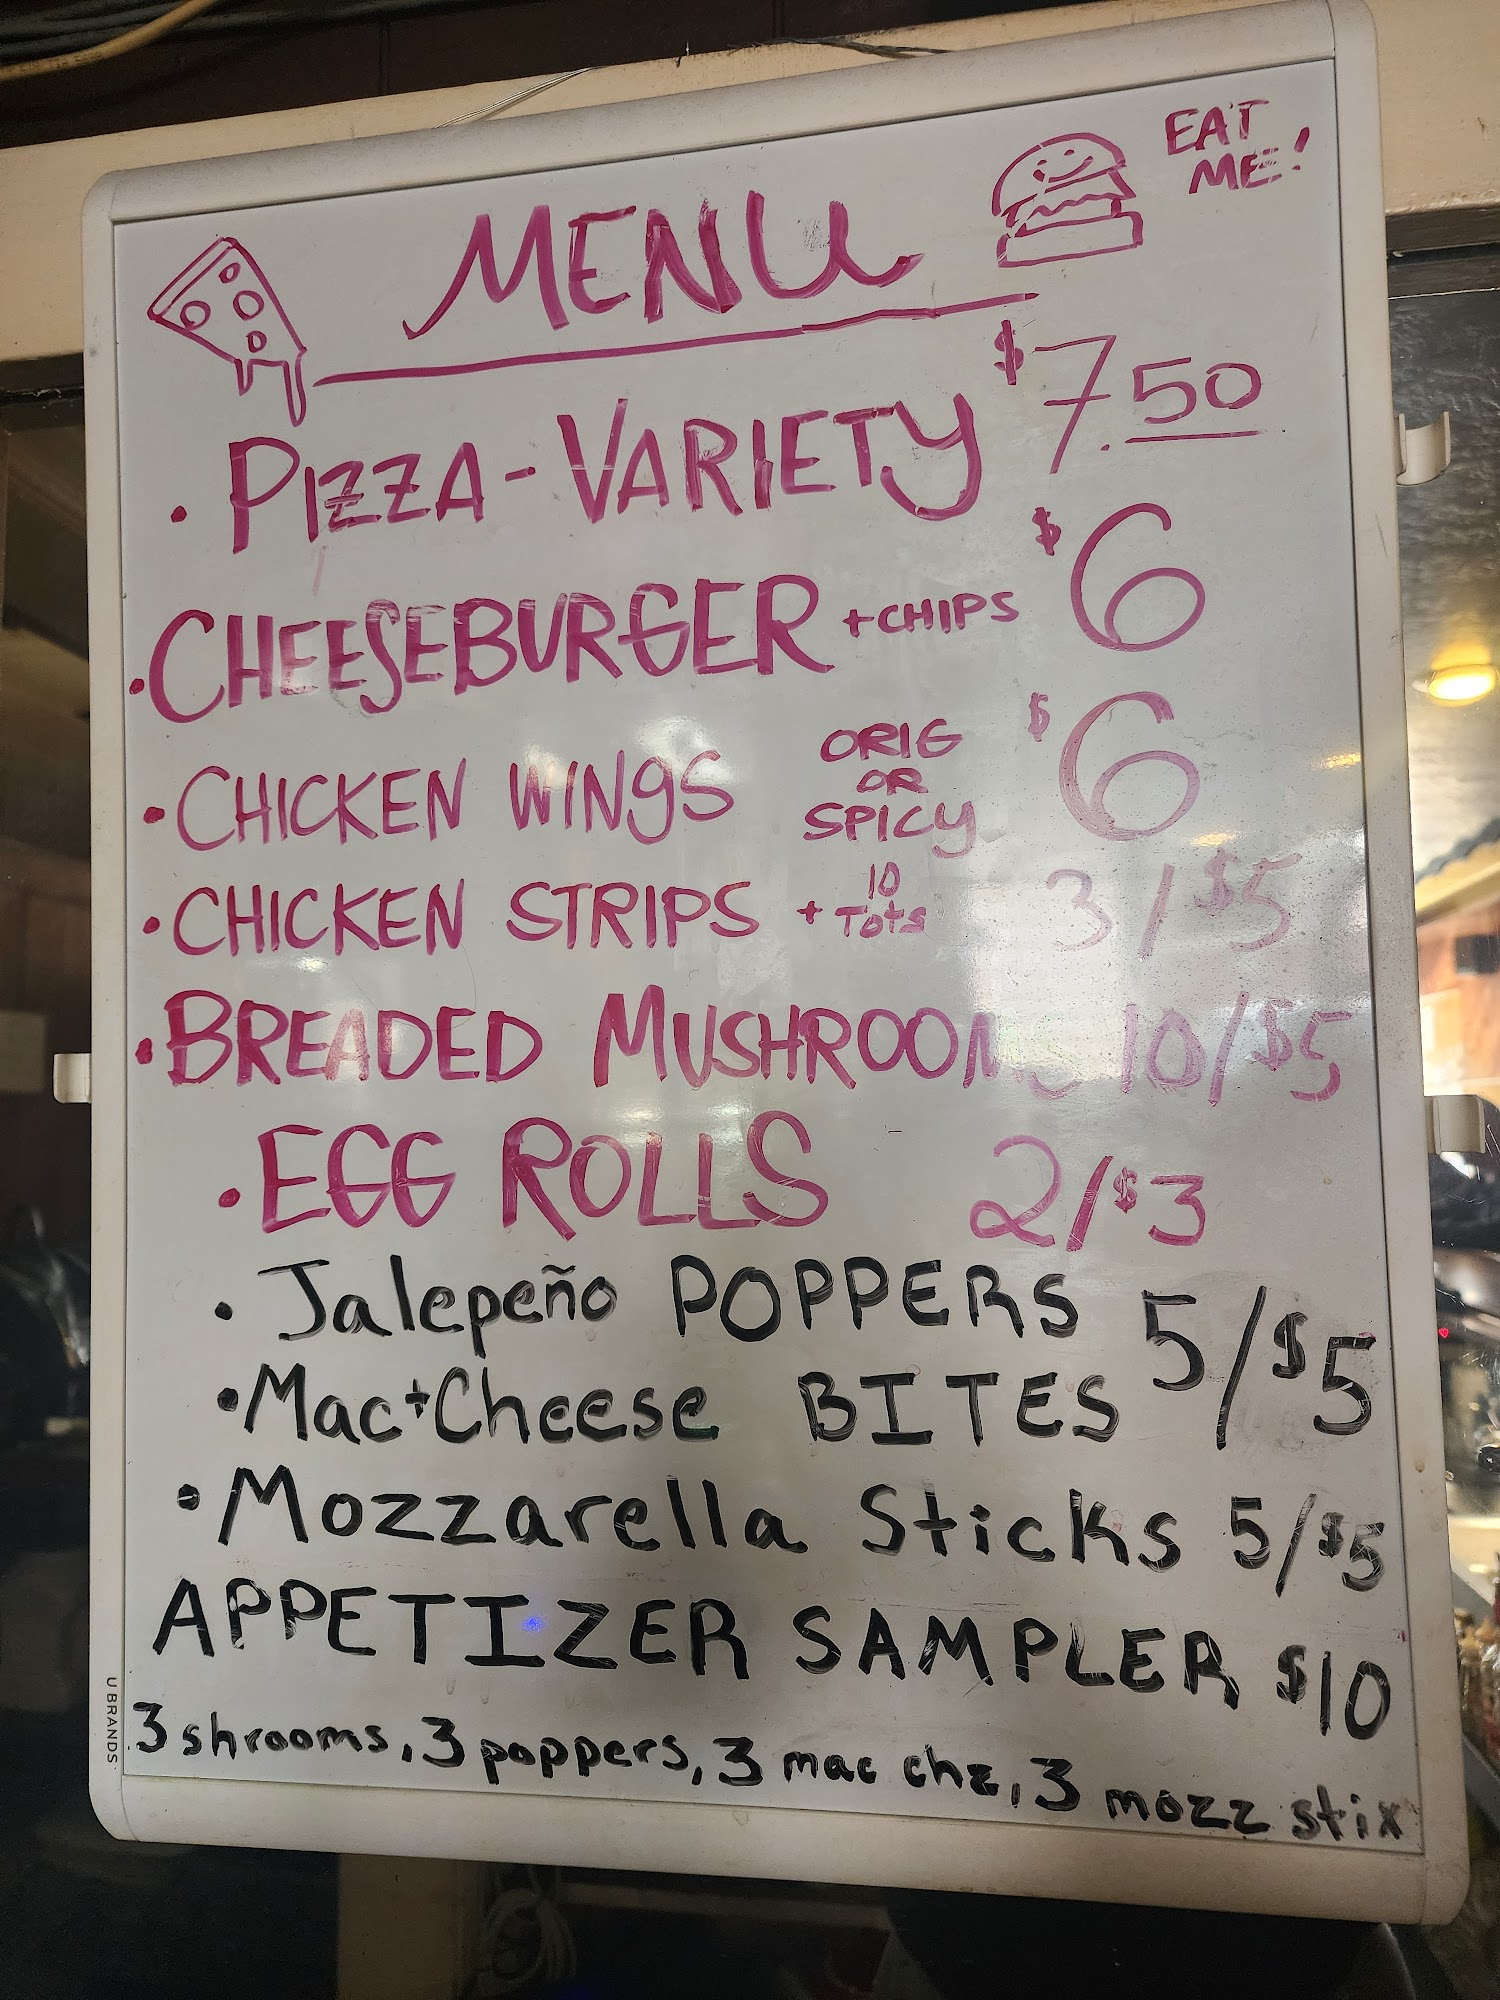 EAT
ME!
MENU
• PIZZA - VARIETY $7.50
• CHEESEBURGER + CHIPS $6
• CHICKEN WINGS ORIG OR SPICY $6
• CHICKEN STRIPS + 10 Tots 3/$5
• BREADED MUSHROOMS 10/$5
• EGG ROLLS 2/$3
• Jalepeño POPPERS 5/$5
• Mac+Cheese BITES
• Mozzarella Sticks 5/$5
APPETIZER SAMPLER $10
3 shrooms, 3 poppers, 3 mac chz, 3 mozz stix
U BRANDS